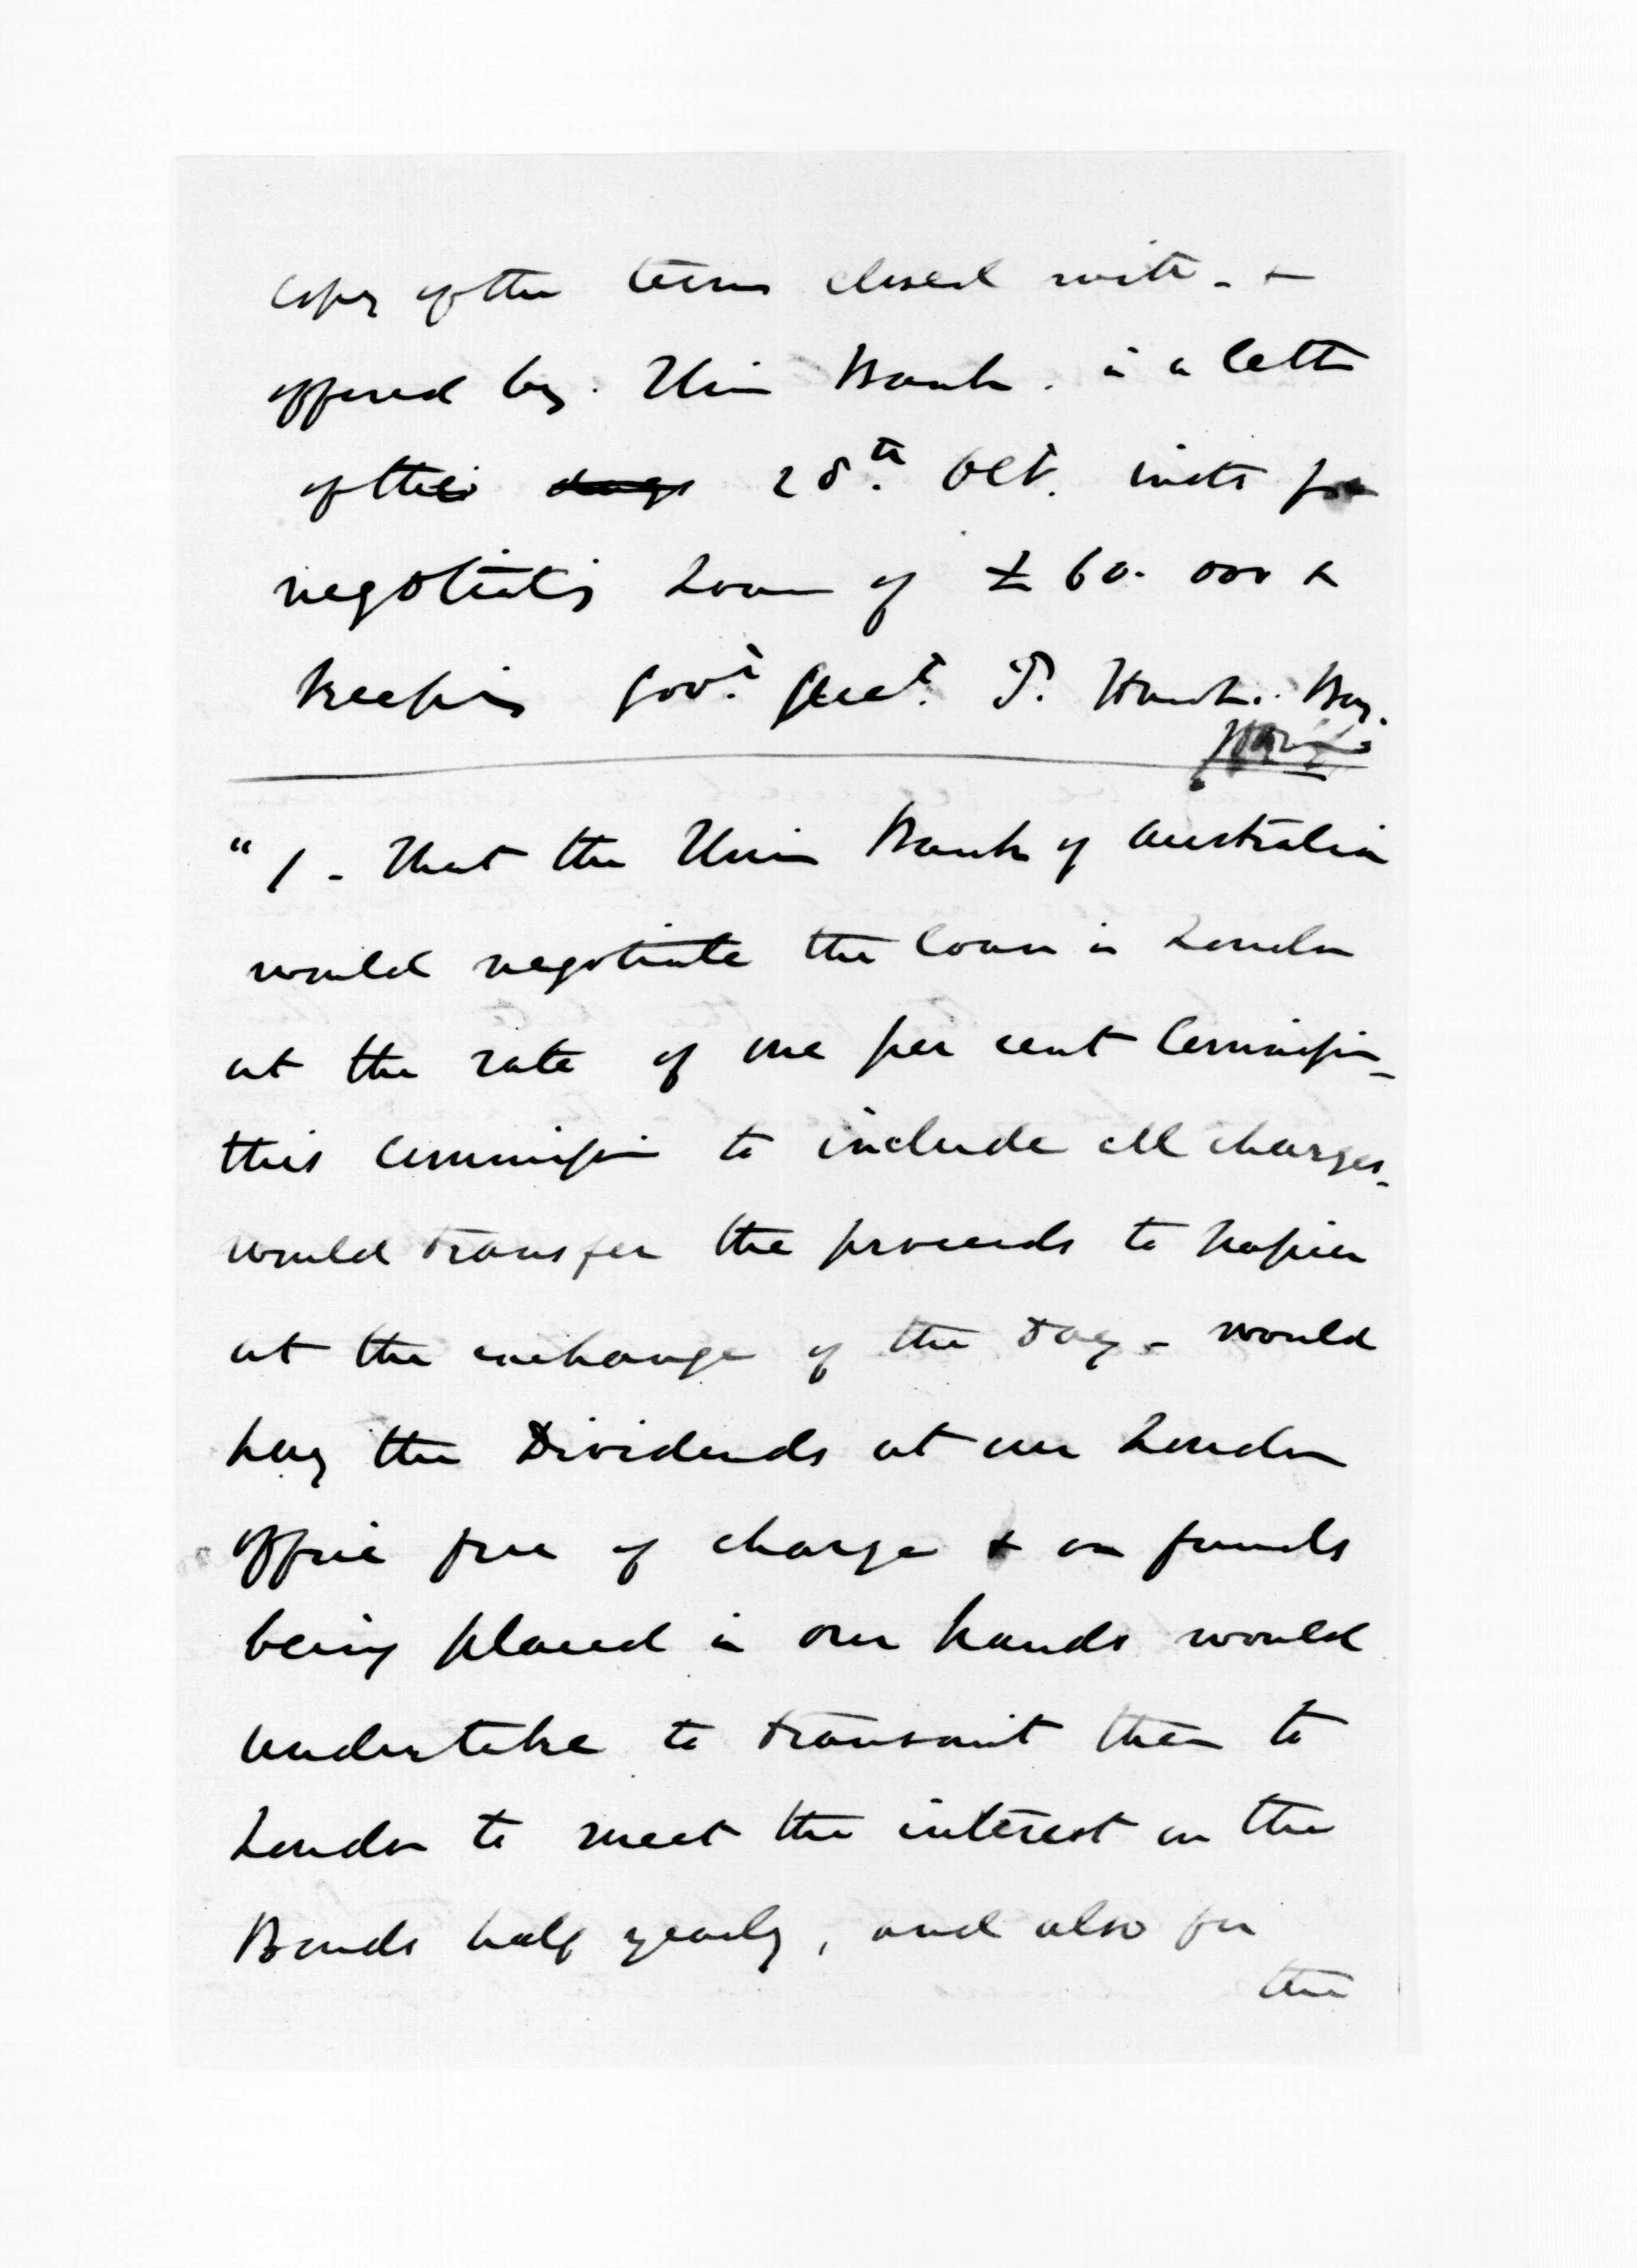 Copy of the terms closed with - &
offered by. Union Bank. in a letter
of the 28.th Oct. inst for
negotiating Loan of £60.000 &
keeping Govt. Acct. P. Hawke. Bay.
"1 - That the Union Bank of Australia
would negotiate the loan in London
at the rate of one per cent Commission -
this Commission to include all charges -
would transfer the proceeds to Napier
at the exchange of the day - would
pay the Dividends at our London
office free of charge & on funds
being placed in our hands would
undertake to transmit them to
London to meet the interest on the
Bonds half yearly, and also for
the